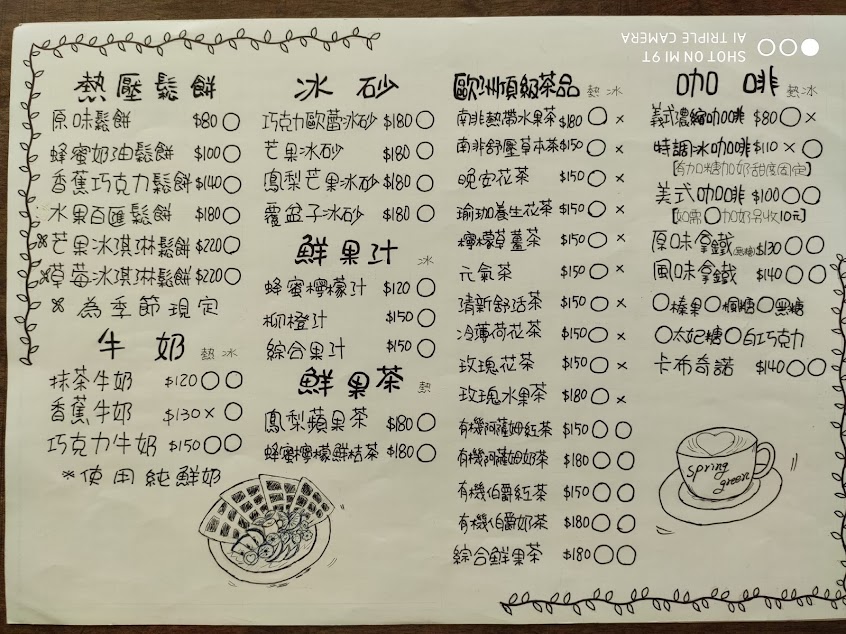 熱壓鬆餅
原味鬆餅 $80○
蜂蜜奶油鬆餅 $100○
香蕉巧克力鬆餅 $140○
水果百匯鬆餅 $180○
※芒果冰淇淋鬆餅 $220○
※草莓冰淇淋鬆餅 $220○
※為季節現定
牛奶 熱 冰
抹茶牛奶 $120○○
香蕉牛奶 $130×○
巧克力牛奶 $150○○
*使用純鮮奶
冰砂
巧克力歐蕾冰砂 $180○
芒果冰砂 $180○
鳳梨芒果冰砂 $180○
覆盆子冰砂 $180○
鮮果汁 冰
蜂蜜檸檬汁 $120○
柳橙汁 $150○
綜合果汁 $150○
鮮果茶 熱
鳳梨蘋果茶 $180○
蜂蜜檸檬鮮桔茶 $180○
歐洲頂級茶品 熱 冰
南非熱帶水果茶 $180○×
南非舒壓草本茶 $150○×
晚安花茶 $150○×
瑜珈養生花茶 $150○×
檸檬草薑茶 $150○×
元氣茶 $150○×
清新舒活茶 $150○×
冷薄荷花茶 $150○×
玫瑰花茶 $150○×
玫瑰水果茶 $180○×
有機阿薩姆紅茶 $150○○
有機阿薩姆奶茶 $180○○
有機伯爵紅茶 $150○○
有機伯爵奶茶 $180○○
綜合鮮果茶 $180○○
咖啡 熱 冰
義式濃縮咖啡 $80○×
特調冰咖啡 $110×○
[有加糖加奶甜度固定]
美式咖啡 $100○○
[如需○加奶另收10元]
原味拿鐵(無糖) $130○○
風味拿鐵 $140○○
○榛果○楓糖○黑糖
○太妃糖○白巧克力
卡布奇諾 $140○○
spring
green
SHOT ON MI 9T
AI TRIPLE CAMERA